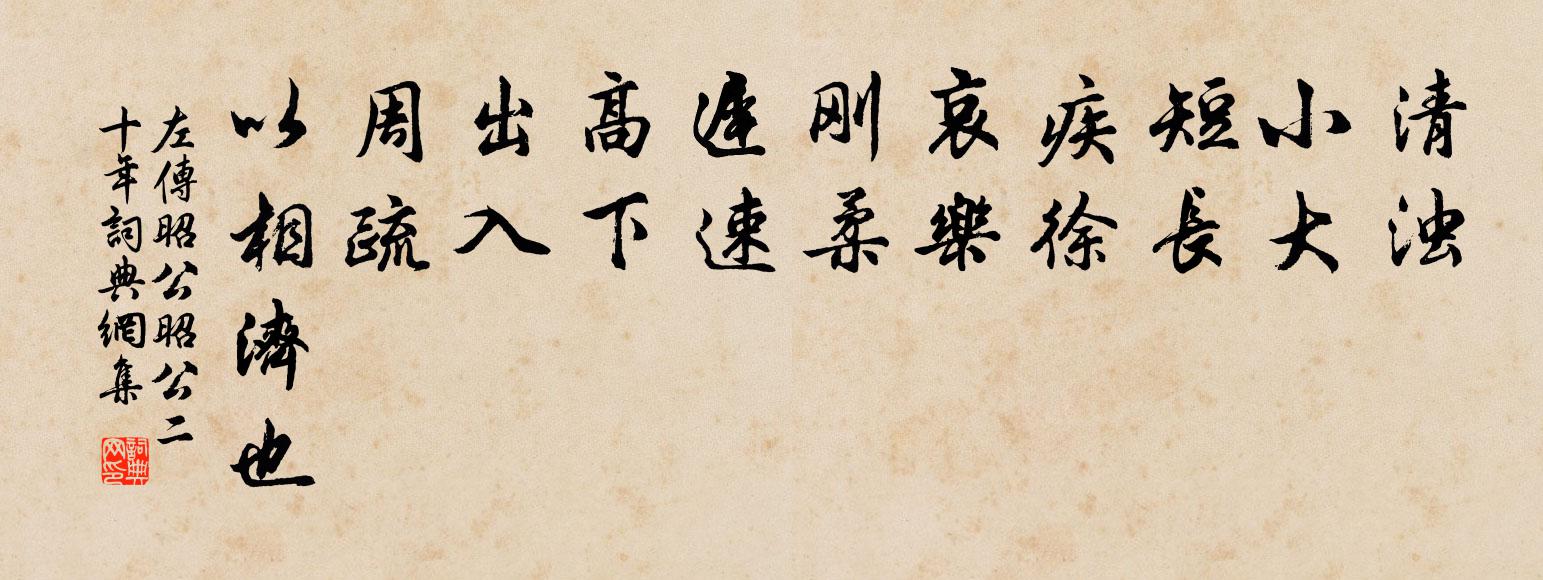 清浊
小大
短長
疾徐
哀樂
刚柔
遲速
高下
出入
周疏
以相濟也
左傳昭公昭公二
十年詞典網集
詞典
网印